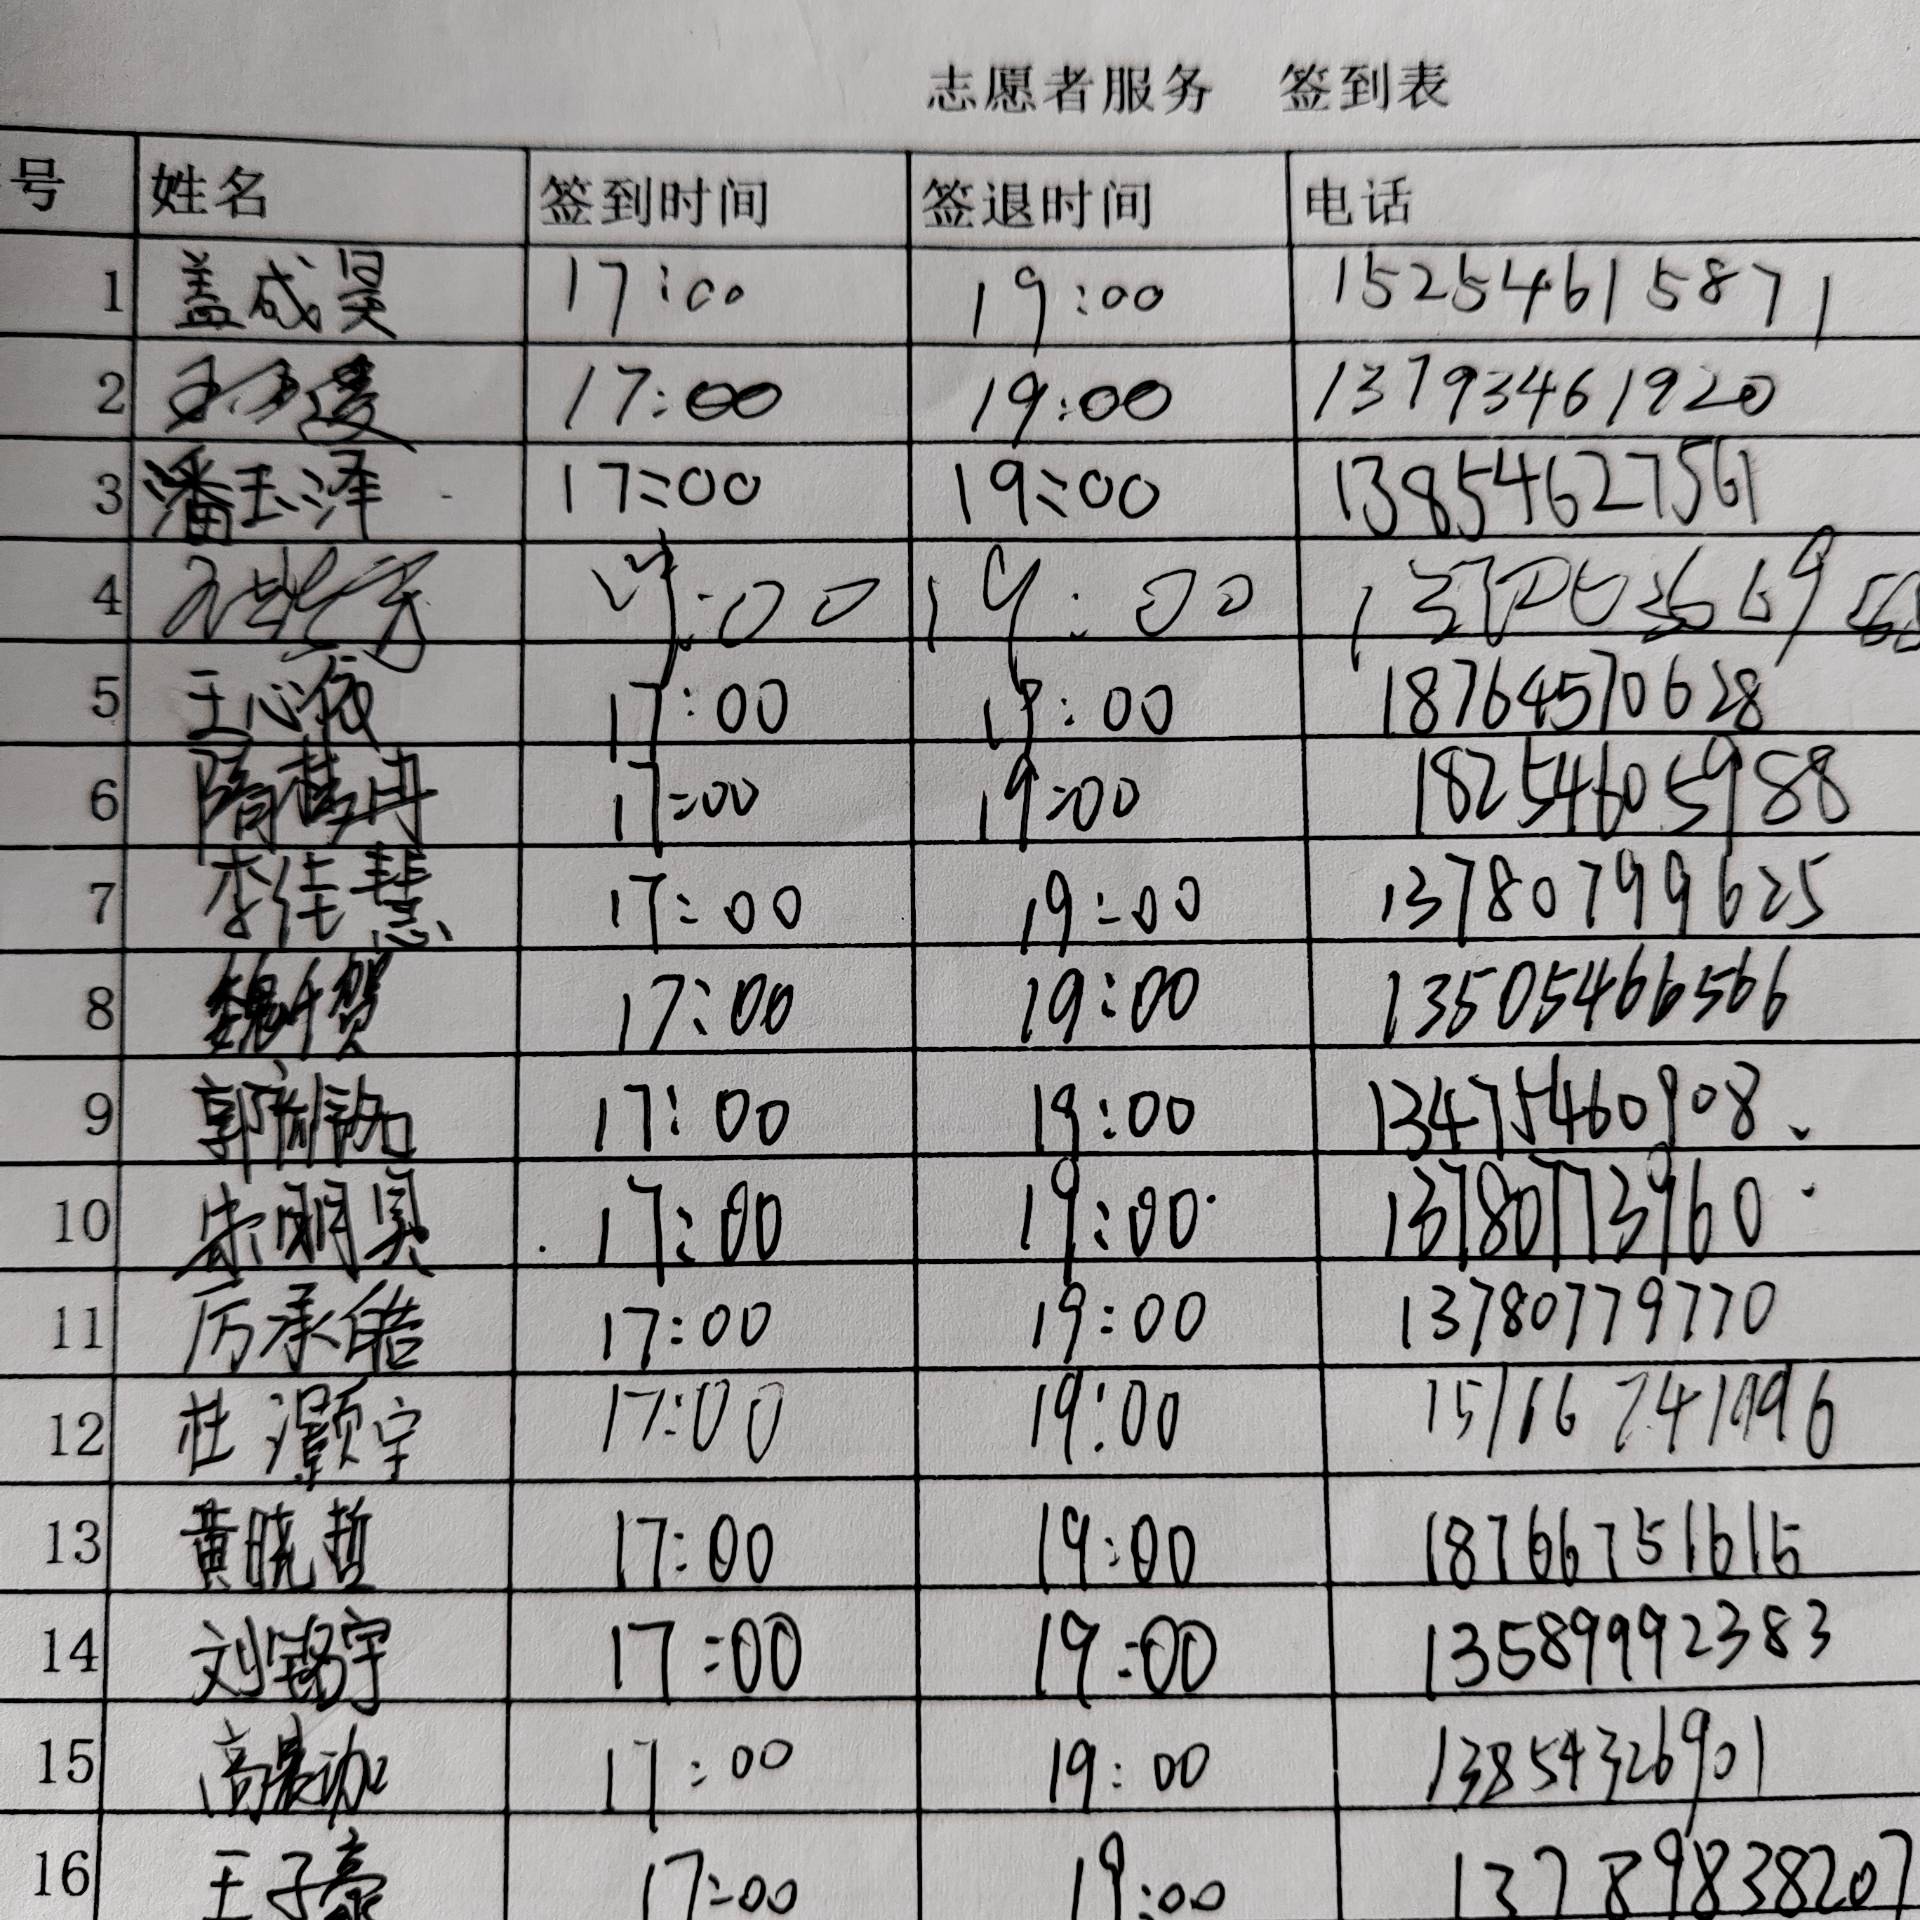 志愿者服务 签到表
号 姓名 签到时间 签退时间 电话
1 盖成昊 17:00 19:00 15254615871
2 17:00 19:00 13793461920
3 潘玉泽 17:00 19:00 13854627561
4 17:00 19:00
5 王心依 17:00 19:00 18764570628
6 隋梦冉 17:00 19:00 18254605988
7 李佳慧 17:00 19:00 13780799625
8 魏千贺 17:00 19:00 13505466566
9 郭 17:00 19:00 13475460908
10 宋明昊 17:00 19:00 13780773960
11 厉承皓 17:00 19:00 13780779770
12 杜灏宇 17:00 19:00
13 黄晓哲 17:00 19:00 18766751615
14 刘铭宇 17:00 19:00 13589992383
15 高 17:00 19:00 13854326901
16 王子豪 17:00 19:00 13789838207